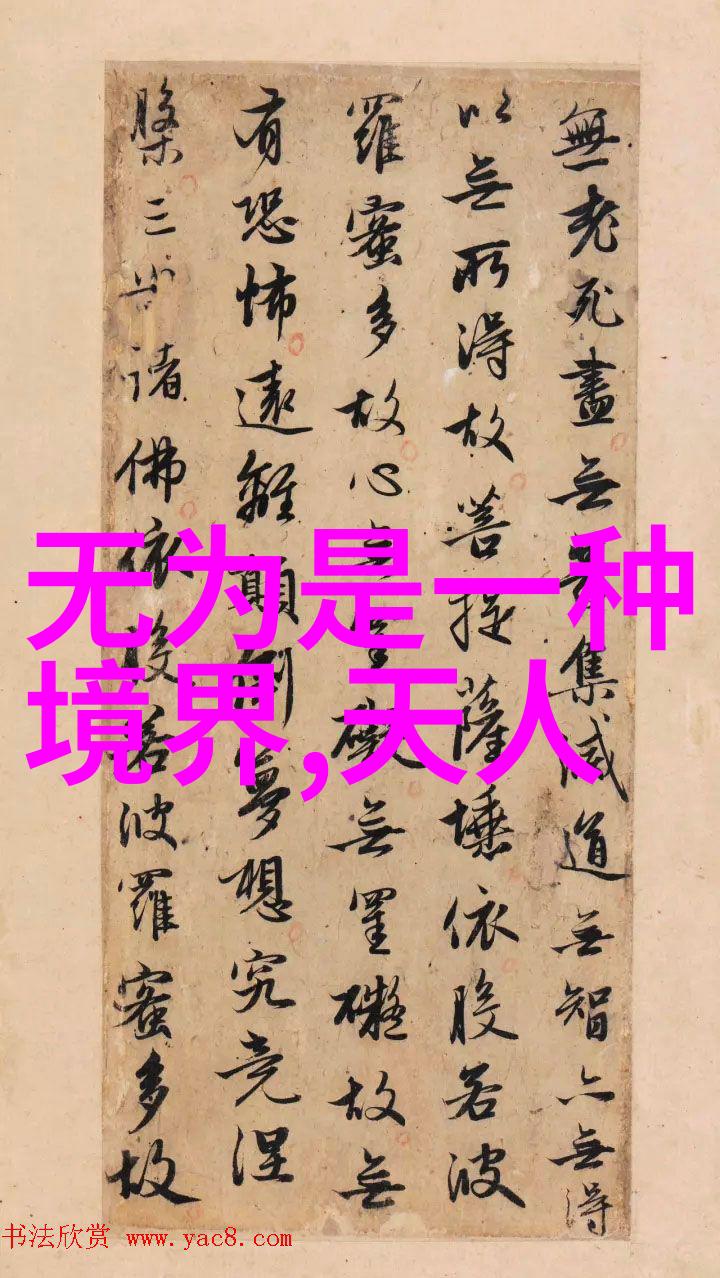 無老死盡無苦集滅道無智亦無得
以無所得故菩提薩埵依般若波
羅蜜多故心無罣礙無罣礙故無
有恐怖遠離顛倒夢想究竟涅
槃三世諸佛依般若波羅蜜多故
无为是一种
境界,天人
书法欣赏 www.yac8.com